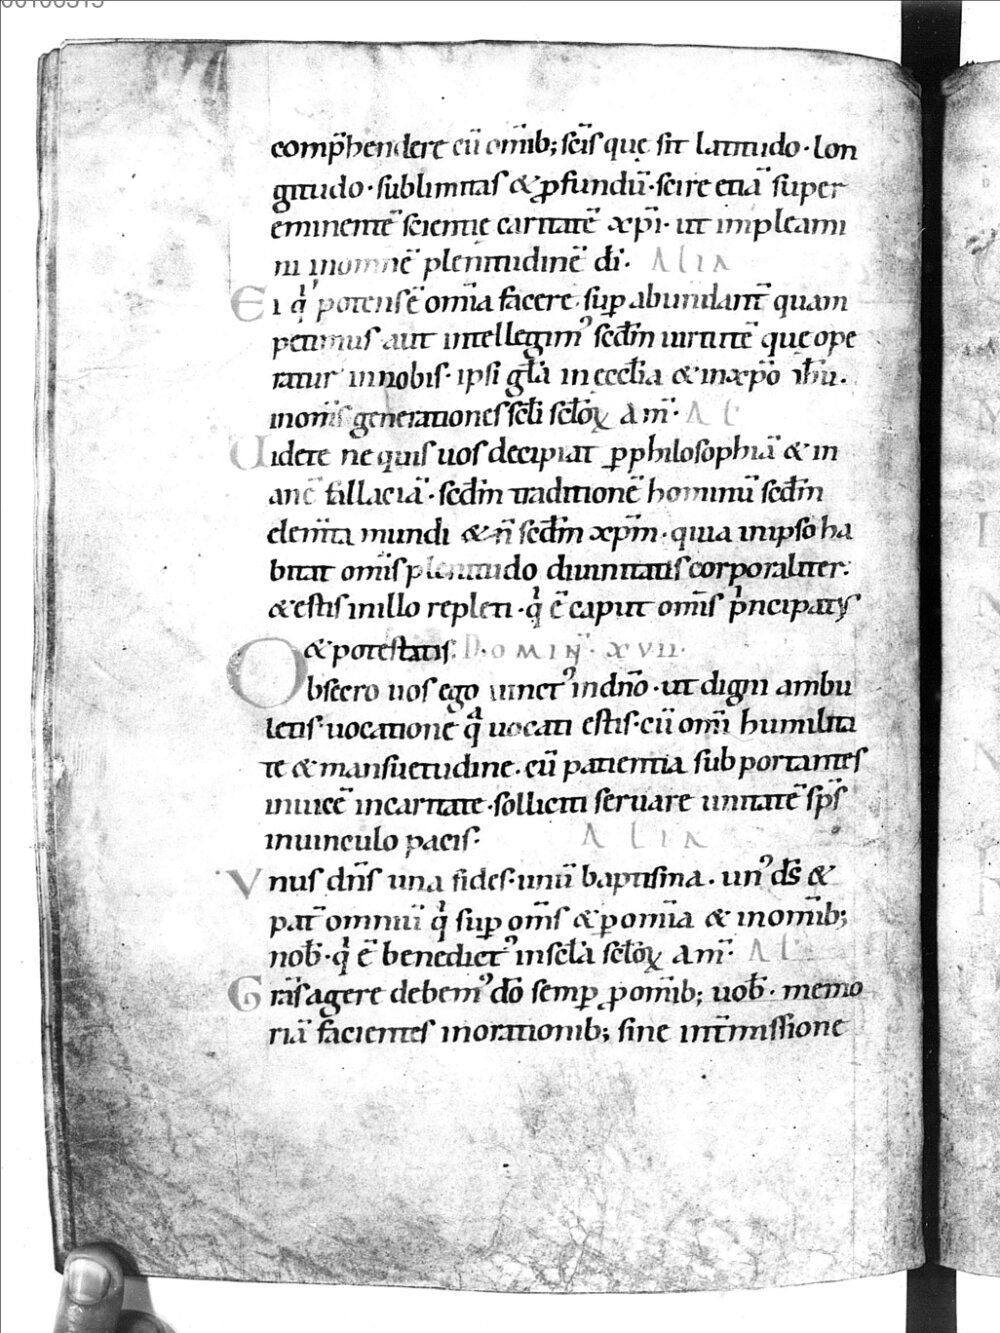 comp̄hendere cū om̄ib; sc̄is quę sit latitudo · lon
gitudo · sublimitas & ꝓfundū · scire etiā super
eminentē scientię caritatē xp̄i · ut impleami
ni inomnē plenitudinē dī · Alia
Ei q̇ potens ē om̄ia facere sup abundant̄ quam
petimus aut intellegim᾽ scd̄m uirtutē quę ope
ratur innobis · ipsi gl̄a in eccl̄ia & inxp̄o ih̄u ·
inom̄s generationes scl̄i scl̄oꝝ am̄ · Al̄
Uidete ne quis uos decipiat ꝑ philosophiā & in
anē fallaciā · scd̄m traditionē hominū scd̄m
elem̄ta mundi & n̄ scd̄m xp̄m · quia inipso ha
bitat om̄is plenitudo diuinitatis corporaliter ·
& estis inillo repleti · q̇ ē caput om̄is ṗncipatus
& potestatis · Domin̄ · xvii ·
Obsecro uos ego uinct᾽ indn̄o · ut digni ambu
letis · uocatione q̄ uocati estis · cū om̄i humilita
te & mansuetudine · cū patientia subportantes
inuicē incaritate · solliciti seruare unitatē sp̄s
inuinculo pacis · Alia
Vnus dn̄s una fides · unū baptisma · un᾽ ds̄ &
pat̄ omniū q̇ sup om̄s & ꝑ om̄ia & inom̄ib;
nob̄ · q̇ ē benedict᾽ inscl̄a scl̄oꝝ am̄ · Al̄
Gr̄as agere debem᾽ dō semp ꝓ om̄ib; uob̄ · memo
riā facientes inorationib; sine int̄missione